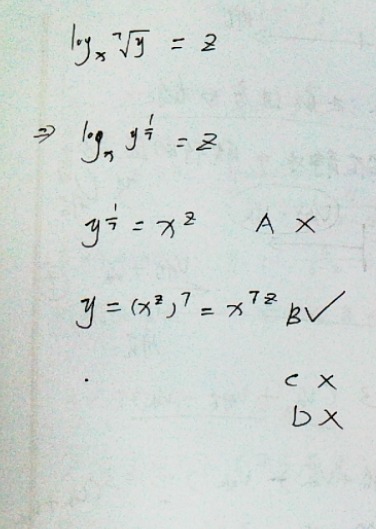 log_x ⁷√y = z
⇒ log_x y^(1/7) = z
y^(1/7) = x^z A ×
y = (x^z)^7 = x^(7z) B ✓
. C ×
D ×